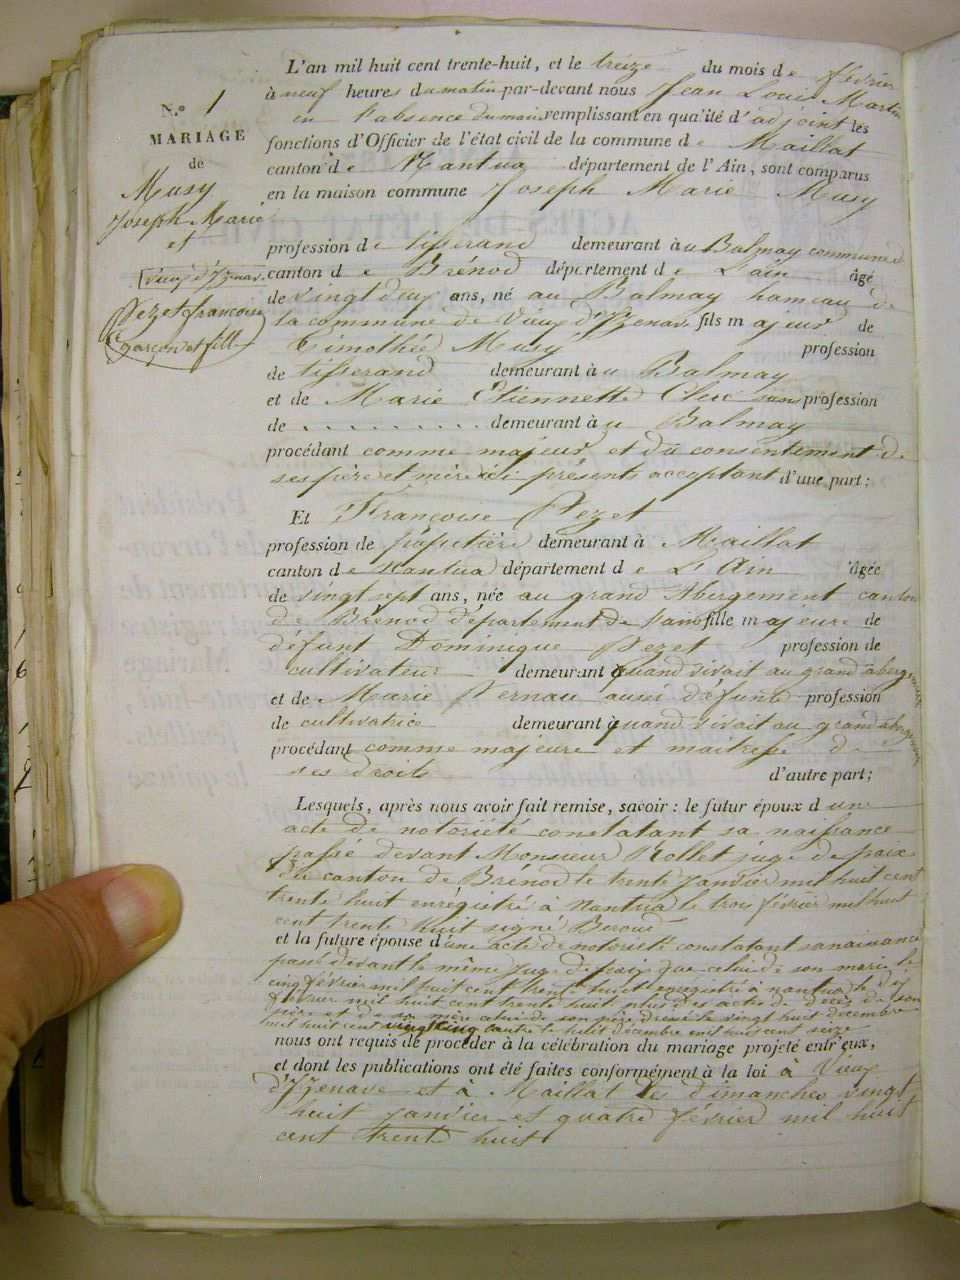 N.º 1
MARIAGE
de
Musy
Joseph Marie
et
vieux d'Izenave
Pezet francoise
garçon et fille
L'an mil huit cent trente-huit, et le treize du mois de février
à neuf heures du matin par-devant nous Jean Louis Martin
en l'absence du maire remplissant en qualité d'adjoint les
fonctions d'Officier de l'état civil de la commune de Maillat
canton de Nantua département de l'Ain, sont comparus
en la maison commune Joseph Marie Musy
profession de tisserand demeurant au Balmay commune d
canton de Brénod département de L'ain âgé
de vingt deux ans, né au Balmay hameau de
la commune de Vieux d'Izenave fils majeur de
Timothée Musy profession
de tisserand demeurant au Balmay
et de Marie Etiennette Clerc sans profession
de . . . . . . . . . . demeurant au Balmay
procédant comme majeur et du consentement de
ses père et mère ici présents acceptant d'une part;
Et Françoise Pezet
profession de papetière demeurant à Maillat
canton de Nantua département de L'Ain âgée
de vingt sept ans, née au grand Abergement canton
de Brénod département de l'ain fille majeure de
défunt Dominique Pezet profession de
cultivateur demeurant quand vivait au grand aberg
et de Marie Pernau aussi défunte profession
de cultivatrice demeurant à quand vivait au grand abergement
procédant comme majeure et maitresse de
ses droits d'autre part;
Lesquels, après nous avoir fait remise, savoir: le futur époux d'une
acte de notoriété constatant sa naissance
passé devant Monsieur Rollet juge de paix
du canton de Brénod le trente janvier mil huit cent
trente huit enrégistré à Nantua le trois février mil huit
cent trente huit signé
et la future épouse d'une acte de notoriété constatant sa naissance
passé devant le même juge de paix que celui de son mari le
cinq février mil huit cent trente huit enregistré à nantua le dix
février mil huit cent trente huit plus des actes de décès de son
père et de sa mère celui de son père dressé le vingt huit décembre
mil huit cent vingt cinq l'autre le huit décembre mil huit cent seize
nous ont requis de procéder à la célébration du mariage projeté entr'eux,
et dont les publications ont été faites conformément à la loi à Vieux
d'Izenave et à Maillat les dimanches vingt
huit janvier et quatre février mil huit
cent trente huit